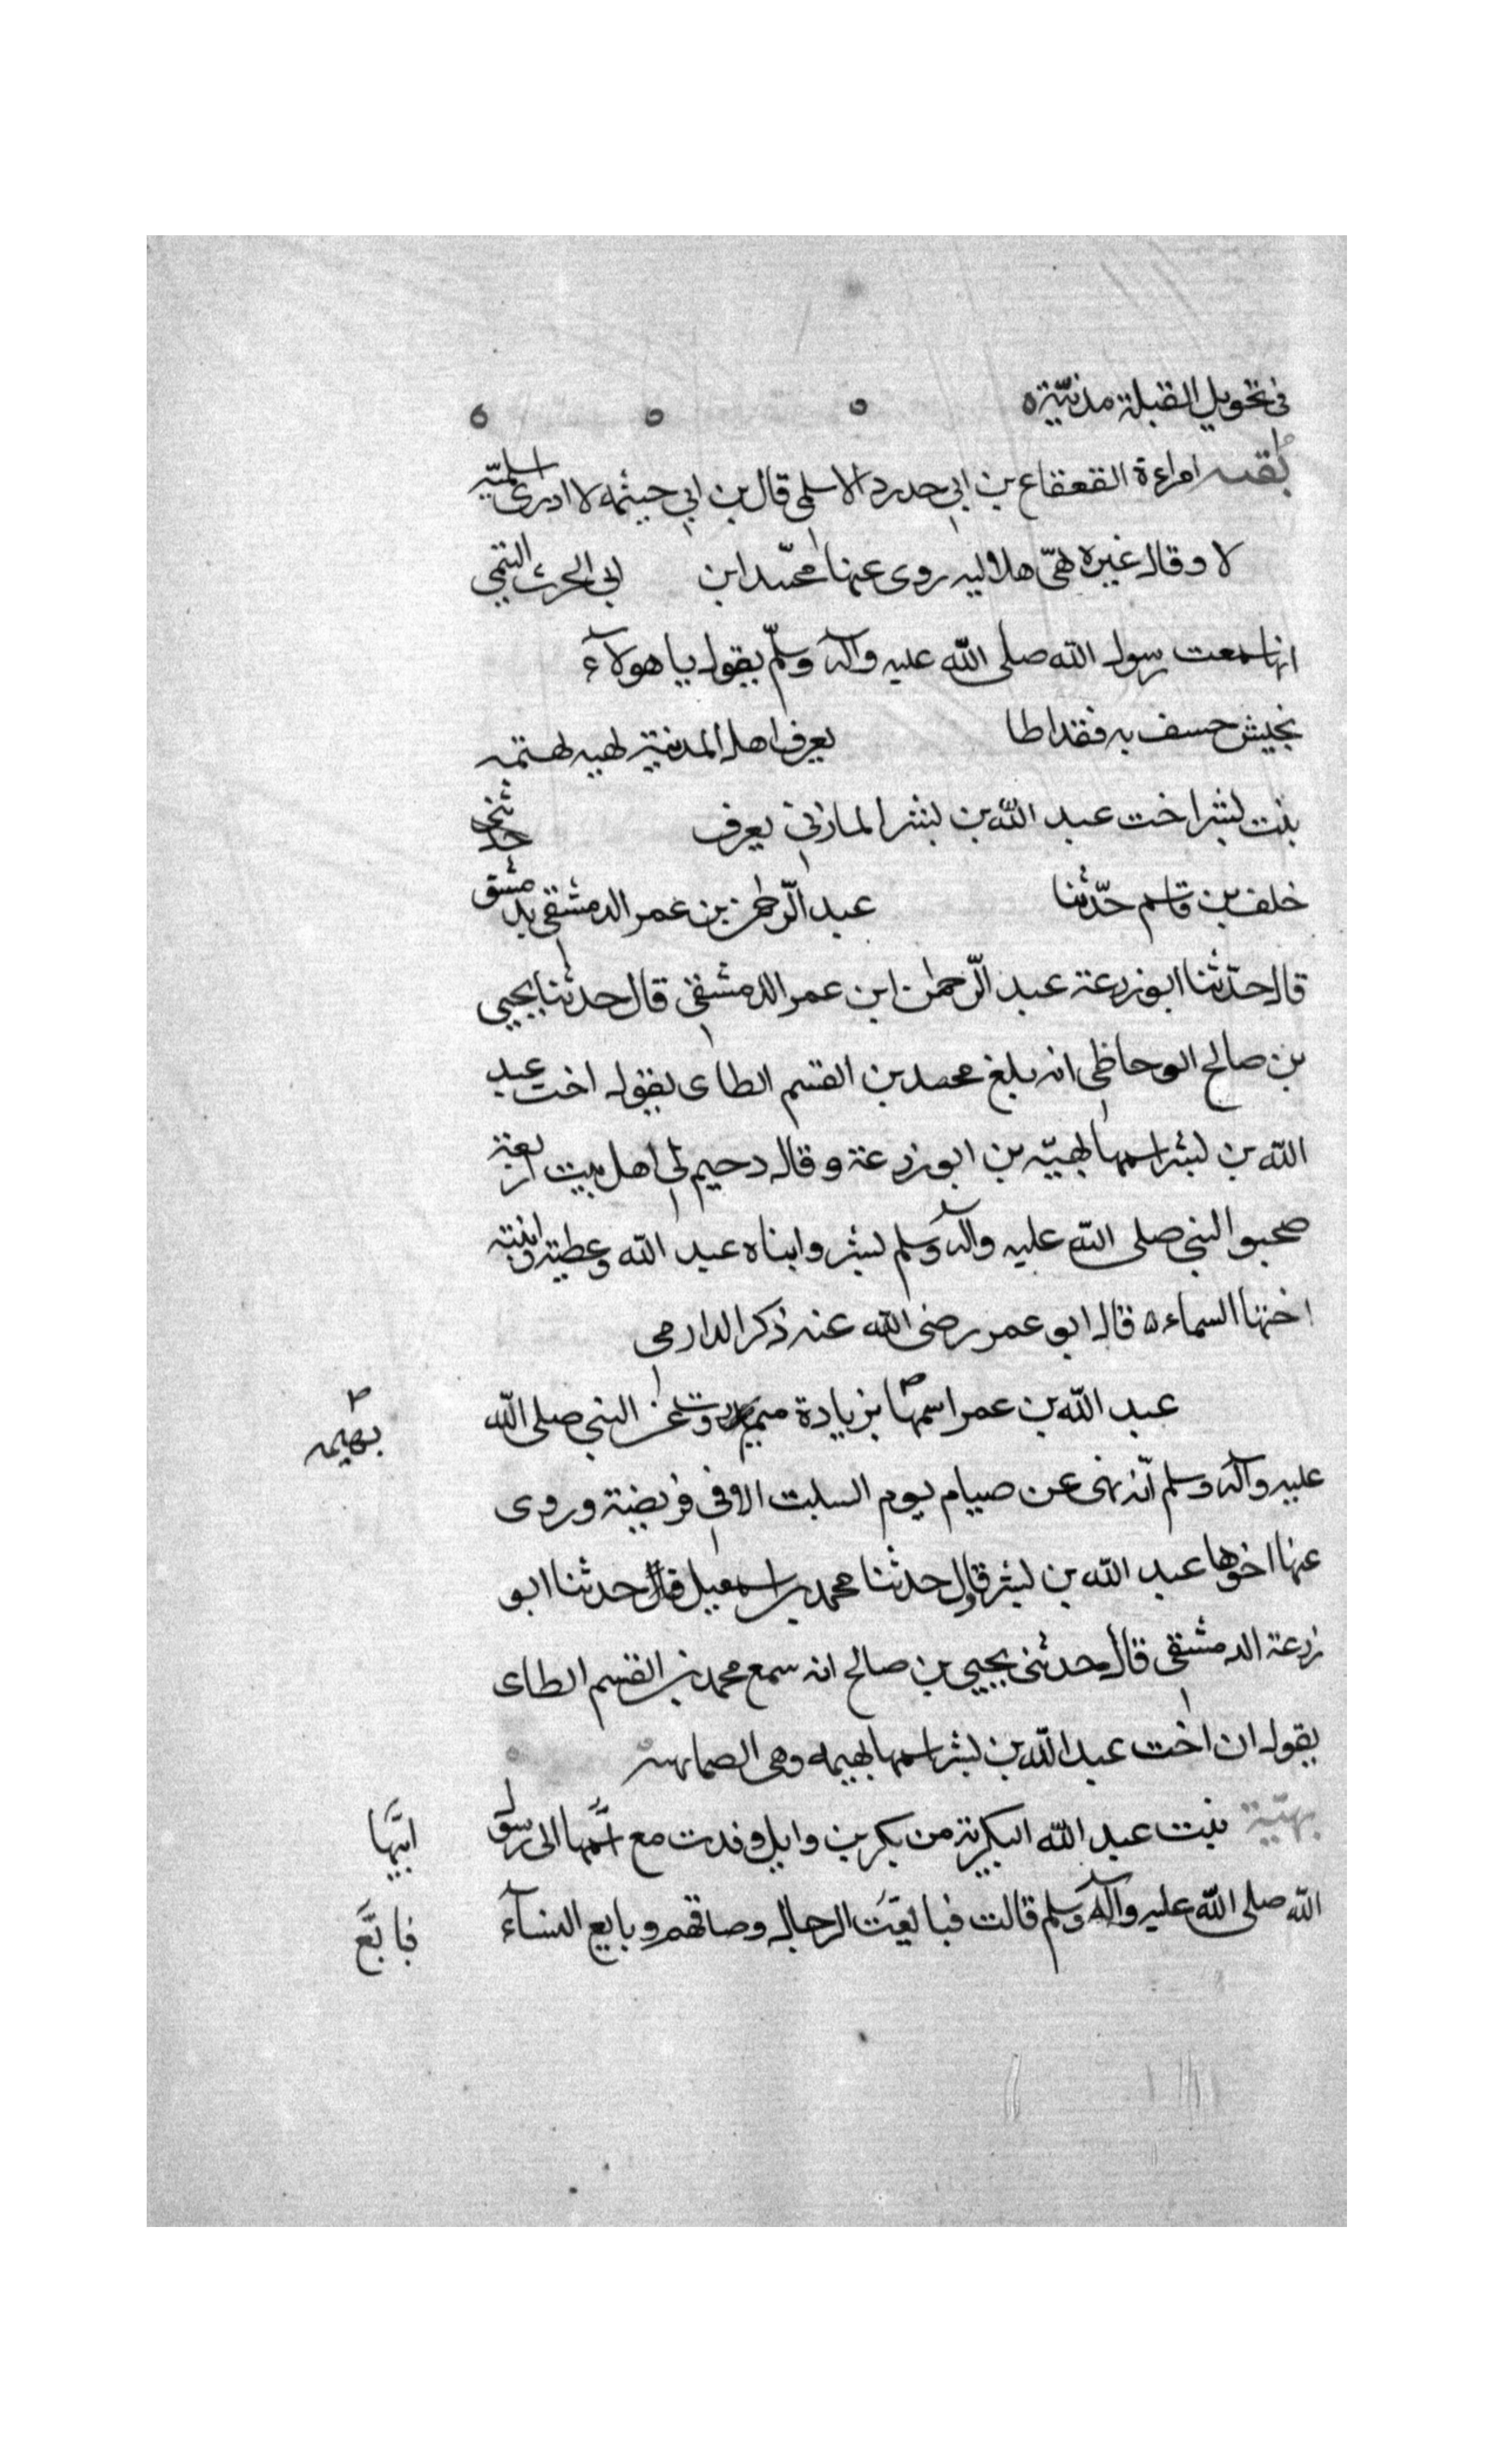 في تحويل القبلة مدنيّة ه ه ه ه
بُقيره امراءة القعقاع بن ابي حدرد الاسلمي قال بن ابي حيثمه لا ادرى اسلميّه
لا وقال غيره هيّ هلاليه روى عنها محمّد ابن ابي الحرث التيمي
انها سمعت رسول الله صلى الله عليه وآله وسلّم يقول يا هولآء
بجيش خسف به فقد اطا يعرف اهل المدنية
بنت بشر اخت عبد الله بن بشر المازني يعرف
خلف بن قاسم حدّثنا عبد الرّحمن بن عمر الدمشقي بدمشق
قال حدّثنا ابو زرعة عبد الرّحمن ابن عمر الدمشقي قال حدثنا يحيى
بن صالح الوحاظي انه بلغ محمد بن القسم الطاى يقول اخت عبد
الله بن بشر اسمها بهيّه بن ابو زرعة وقال دحيم لي اهل بيت اربعة
صحبو النبي صلى الله عليه وآله وسلم بشر وابناه عبد الله وعطية وابنته
اختها السماء ه قال ابو عمر رضى الله عنه ذكر الدارمي
عبد الله بن عمر اسمها بزيادة ميم وروت عن النبي صلى الله
بهيمه
عليه وآله وسلم انّه نهى عن صيام يوم السبت الا في فريضة وروى
عنها اخوها عبد الله بن بشر قال حدثنا محمد بن اسمعيل قال حدثنا ابو
زرعة الدمشقي قال حدثنى يحيى بن صالح انه سمع محمد بن القسم الطاى
يقول ان اخت عبد الله بن بشر اسمها بهيمه وهى الصما
بهيّة بنت عبد الله البكرية من بكر بن وايل وفدت مع امّها الى رسول
ابيّها
الله صلى الله عليه وآله وسلم قالت فبايعت الرجال وصافحهم وبايع النسآء